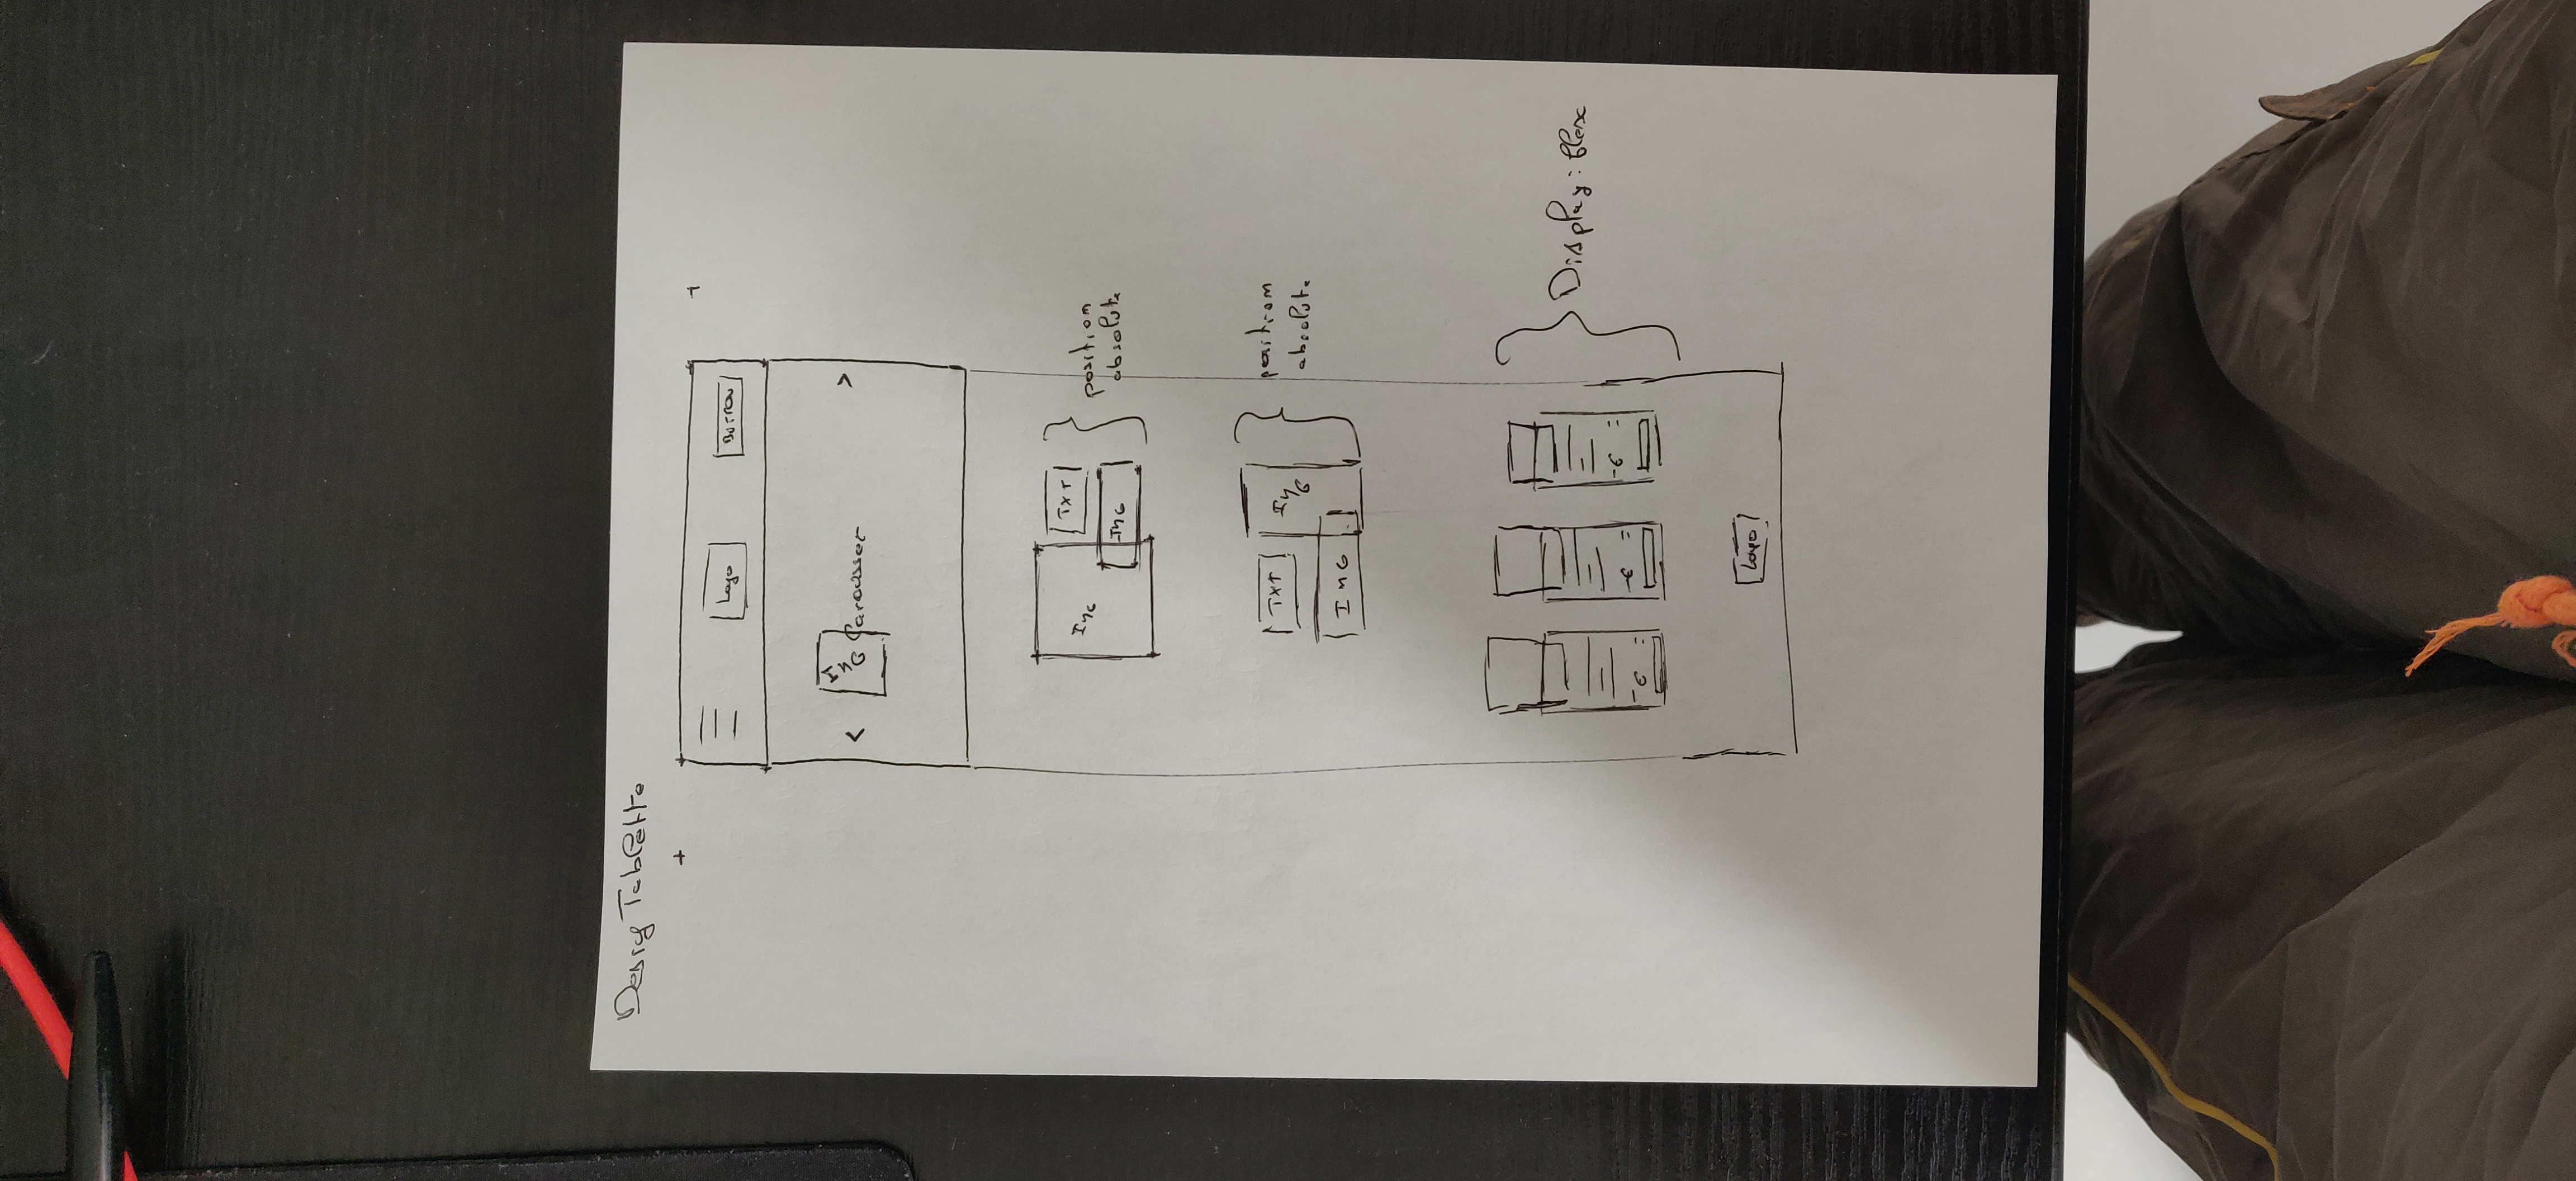 Design Tablette
Logo
BUTTON
<
IMG
Carousser
>
IMG
TXT
IMG
position
absolute
TXT
IMG
IMG
position
absolute
Display: flex
- €
=
- €
=
- €
=
Logo